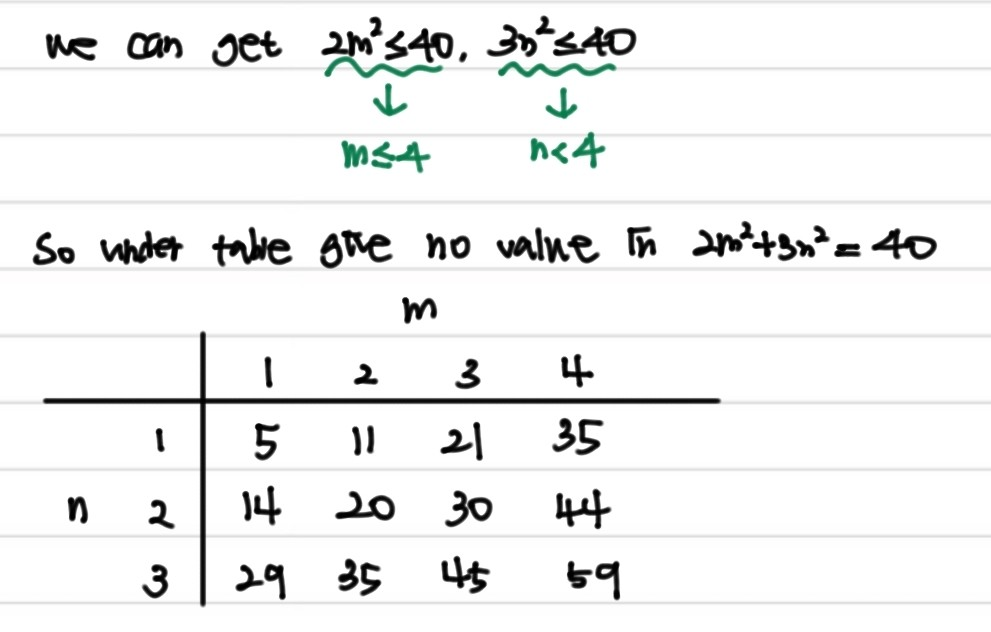 we can get 2m²≤40, 3n²≤40
↓ ↓
m≤4 n<4
So under table give no value in 2m²+3n²=40
m
1 2 3 4
1 5 11 21 35
n 2 14 20 30 44
3 29 35 45 59